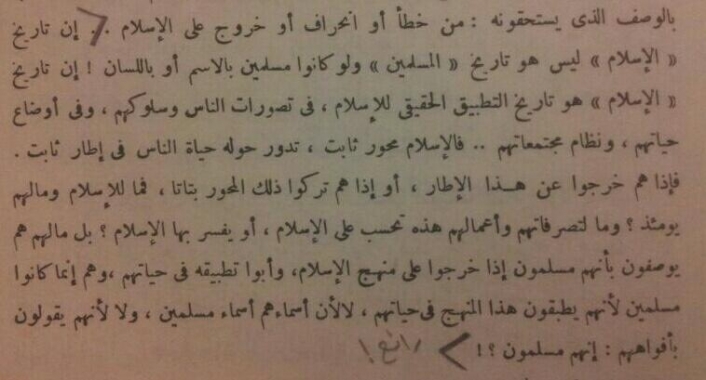 بالوصف الذى يستحقونه : من خطأ أو انحراف أو خروج على الإسلام .. إن تاريخ
« الإسلام » ليس هو تاريخ « المسلمين » ولو كانوا مسلمين بالاسم أو باللسان ! إن تاريخ
« الإسلام » هو تاريخ التطبيق الحقيقى للإسلام ، فى تصورات الناس وسلوكهم ، وفى أوضاع
حياتهم ، ونظام مجتمعاتهم .. فالإسلام محور ثابت ، تدور حوله حياة الناس فى إطار ثابت .
فإذا هم خرجوا عن هذا الإطار ، أو إذا هم تركوا ذلك المحور بتاتا ، فما للإسلام ومالهم
يومئذ ؟ وما لتصرفاتهم وأعمالهم هذه تحسب على الإسلام ، أو يفسر بها الإسلام ؟ بل مالهم هم
يوصفون بأنهم مسلمون إذا خرجوا على منهج الإسلام، وأبوا تطبيقه فى حياتهم ،وهم إنما كانوا
مسلمين لأنهم يطبقون هذا المنهج فىحياتهم ، لالأن أسماءهم أسماء مسلمين ، ولا لأنهم يقولون
بأفواههم : إنهم مسلمون ؟! رائع !